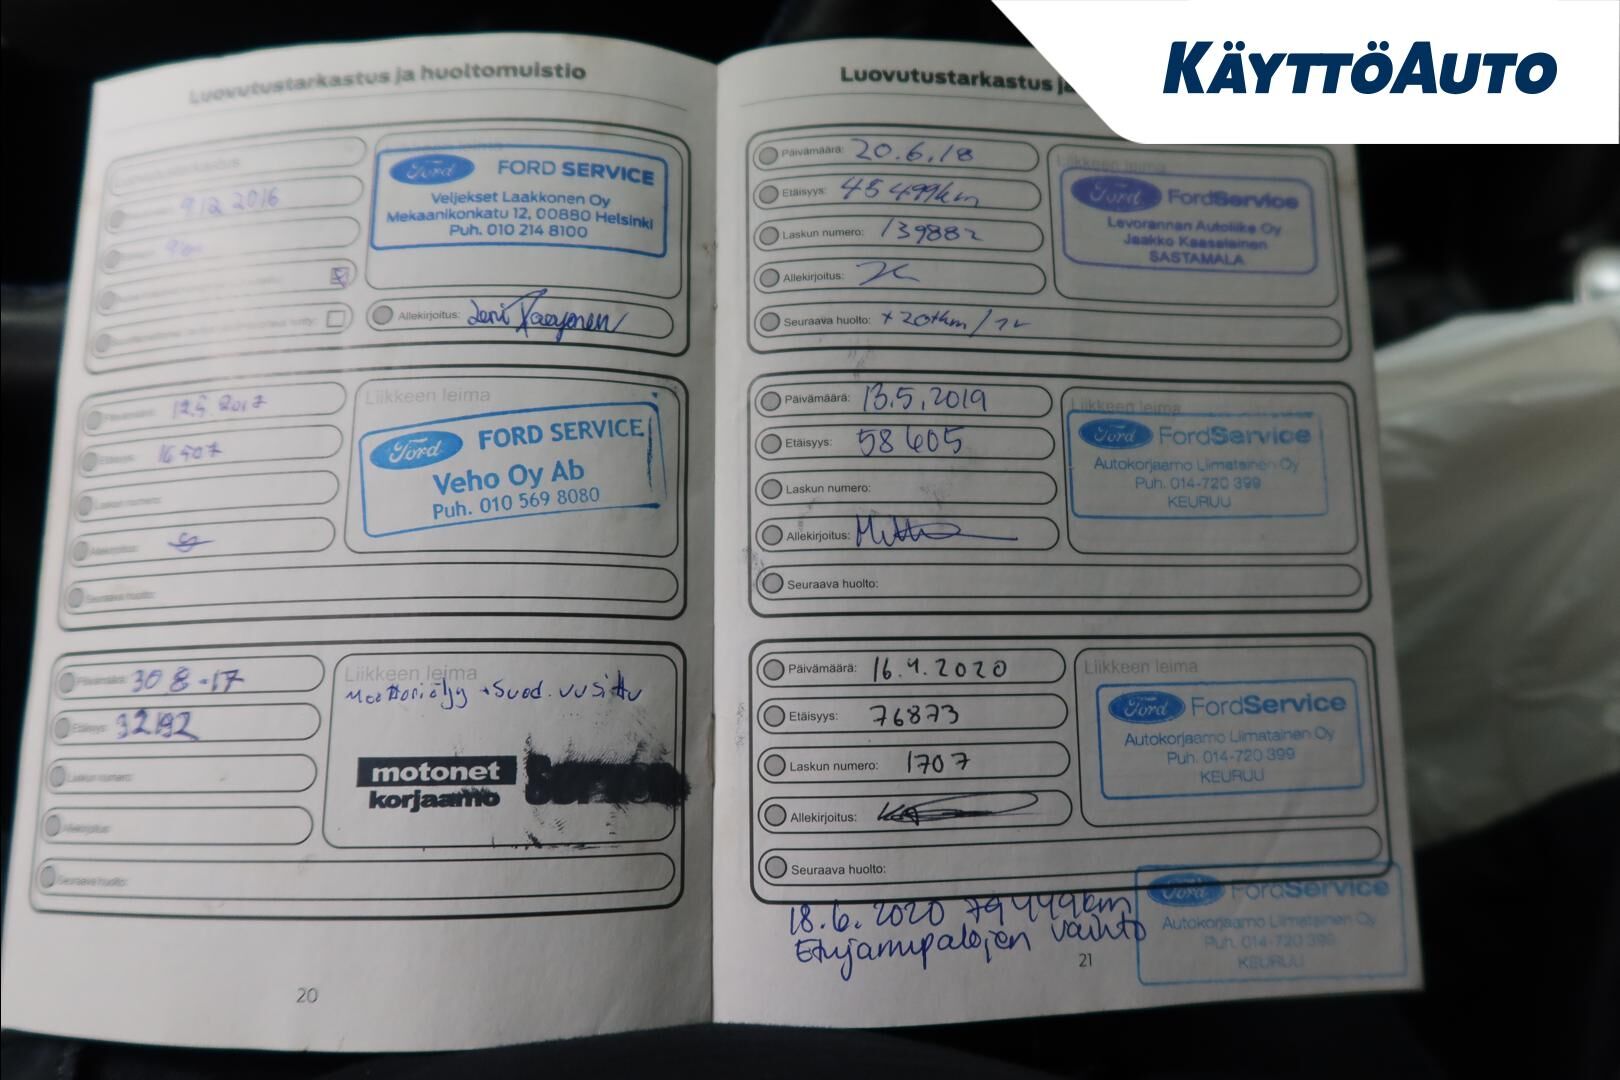 KÄYTTÖAUTO
Luovutustarkastus ja huoltomuistio
9.12.2016
Liikkeen leima
Ford FORD SERVICE
Veljekset Laakkonen Oy
Mekaanikonkatu 12, 00880 Helsinki
Puh. 010 214 8100
Allekirjoitus:
Päivämäärä: 12.5.2017
Etäisyys: 16507
Laskun numero:
Allekirjoitus:
Seuraava huolto:
Liikkeen leima
Ford FORD SERVICE
Veho Oy Ab
Puh. 010 569 8080
Päivämäärä: 30 8 -17
Etäisyys: 32192
Laskun numero:
Allekirjoitus:
Seuraava huolto:
Liikkeen leima
Moottoriöljy + Suod. vusittu
motonet
korjaamo
20
Luovutustarkastus
Päivämäärä: 20.6.18
Etäisyys: 45499km
Laskun numero: 139882
Allekirjoitus:
Seuraava huolto: + 20tkm / 1v
Liikkeen leima
Ford FordService
Levorannan Autoliike Oy
Jaakko Kaaselainen
SASTAMALA
Päivämäärä: 13.5.2019
Etäisyys: 58605
Laskun numero:
Allekirjoitus:
Seuraava huolto:
Liikkeen leima
Ford FordService
Autokorjaamo Liimatainen Oy
Puh. 014-720 399
KEURUU
Päivämäärä: 16.4.2020
Etäisyys: 76873
Laskun numero: 1707
Allekirjoitus:
Seuraava huolto:
Liikkeen leima
Ford FordService
Autokorjaamo Liimatainen Oy
Puh. 014-720 399
KEURUU
18.6.2020 79449km
Etujarrupalojen vaihto
Ford FordService
Autokorjaamo Liimatainen Oy
Puh. 014-720 399
KEURUU
21